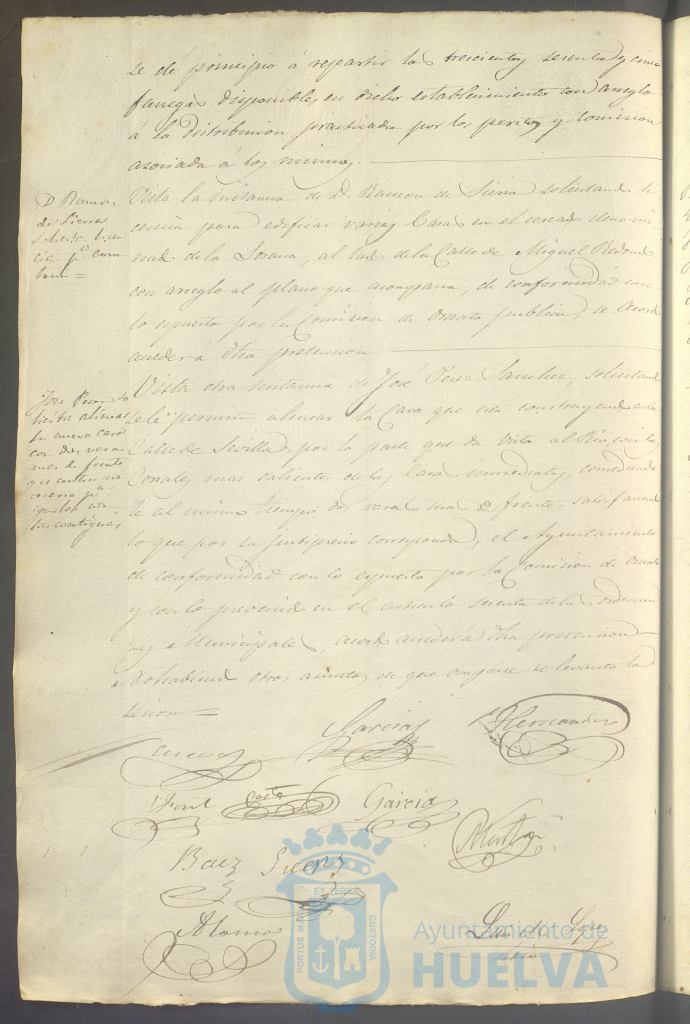 se dé principio á repartir las trescientas sesenta y cinco
fanegas disponibles en dicho establecimiento con arreglo
á la distribucion practicada por los peritos y Comision
asociada á los mismos.
D. Ramon
de Sierra
solicita licen
cia pª cons
truir =
Vista la instancia de D. Ramon de Sierra solicitando li
cencia para edificar varias Casas en el cercado denomi
nado de la Sorana, al lado de la Calle de Miguel Redondo
con arreglo al plano que acompaña, de conformidad con
lo espuesto por la Comision de Ornato publico, se acordó
acceder á dha pretension
José Perez so
licita alinear
su nueva casa
con dos varas
mas de frente
que
cesario pª
igualar con
las contiguas
Vista otra instancia de José Perez Sanchez, solicitando
se le permita alinear la Casa que está construyendo en la
Calle de Sevilla, por la parte que da vista al Rio, con los
Corrales mas salientes de las Casas inmediatas, concediendo
le al mismo tiempo dos varas mas de frente, satisfaciendo
lo que por su justiprecio corresponda, el Ayuntamiento
de conformidad con lo espuesto por la Comision de Ornato
y con lo prevenido en el articulo sesenta de las ordenan
zas Municipales, acordó acceder á dha pretension
No habiendo otros asuntos de que ocuparse se levantó la
sesion =
Garcia
Hernandez
Font
Costa
Garcia
Martin
Baez
Alonso
PORTUS MARIS
ET TERRE
CUSTODIA
Ayuntamiento de
HUELVA